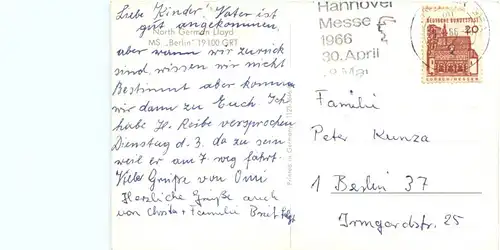 Liebe Kinder! Vater ist
gut angekommen,
North German Lloyd
aber wann wir zurück
MS „Berlin" 19100 GRT
sind, wissen wir nicht
Bestimmt aber kommen
wir dann zu Euch. Ich
habe H. Reibe versprochen
Dienstag d. 3. da zu sein
weil er am 7. weg fährt.
Viele Grüße von Omi
Herzliche Grüße auch
von Christa + Familie
Printed in Germany
Hannover
Messe
1966
30. April
DEUTSCHE BUNDESPOST
20
LORSCH/HESSEN
Familie
Peter Kunza
1 Berlin 37
Irmgardstr.